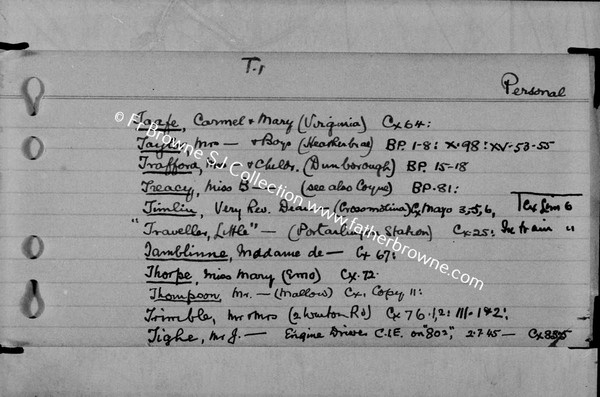 T.1
Personal
Taafe, Carmel & Mary (Virginia) Cx 64:
Taylor, Mrs — & Boys (Heatherbrae) BP. 1-8: X.98: XV-53-55
Trafford, & Chldr. (Dunborough) BP. 15-18
Treacy, Miss B (see also Coyne) BP.81:
Timlin, Very Rev. Dean — (Crossmolina) Cx Mayo 3,5,6, Cx Lein 6
"Traveller, Little" — (Portarlington Station) Cx 25: In train "
Tamblinne, Maddame de — Cx 67:
Thorpe, Miss Mary (Emo) Cx.72.
Thompson, Mr. — (Mallow) Cx, Copy 11:
Trimble, Mr & Mrs (2 Rd) Cx 76.1,2: III.1&2:
Tighe, Mr J. — Engine Driver C.I.E. on "802", 2.7.45 —
© Fr Browne S J Collection. www.fatherbrowne.com